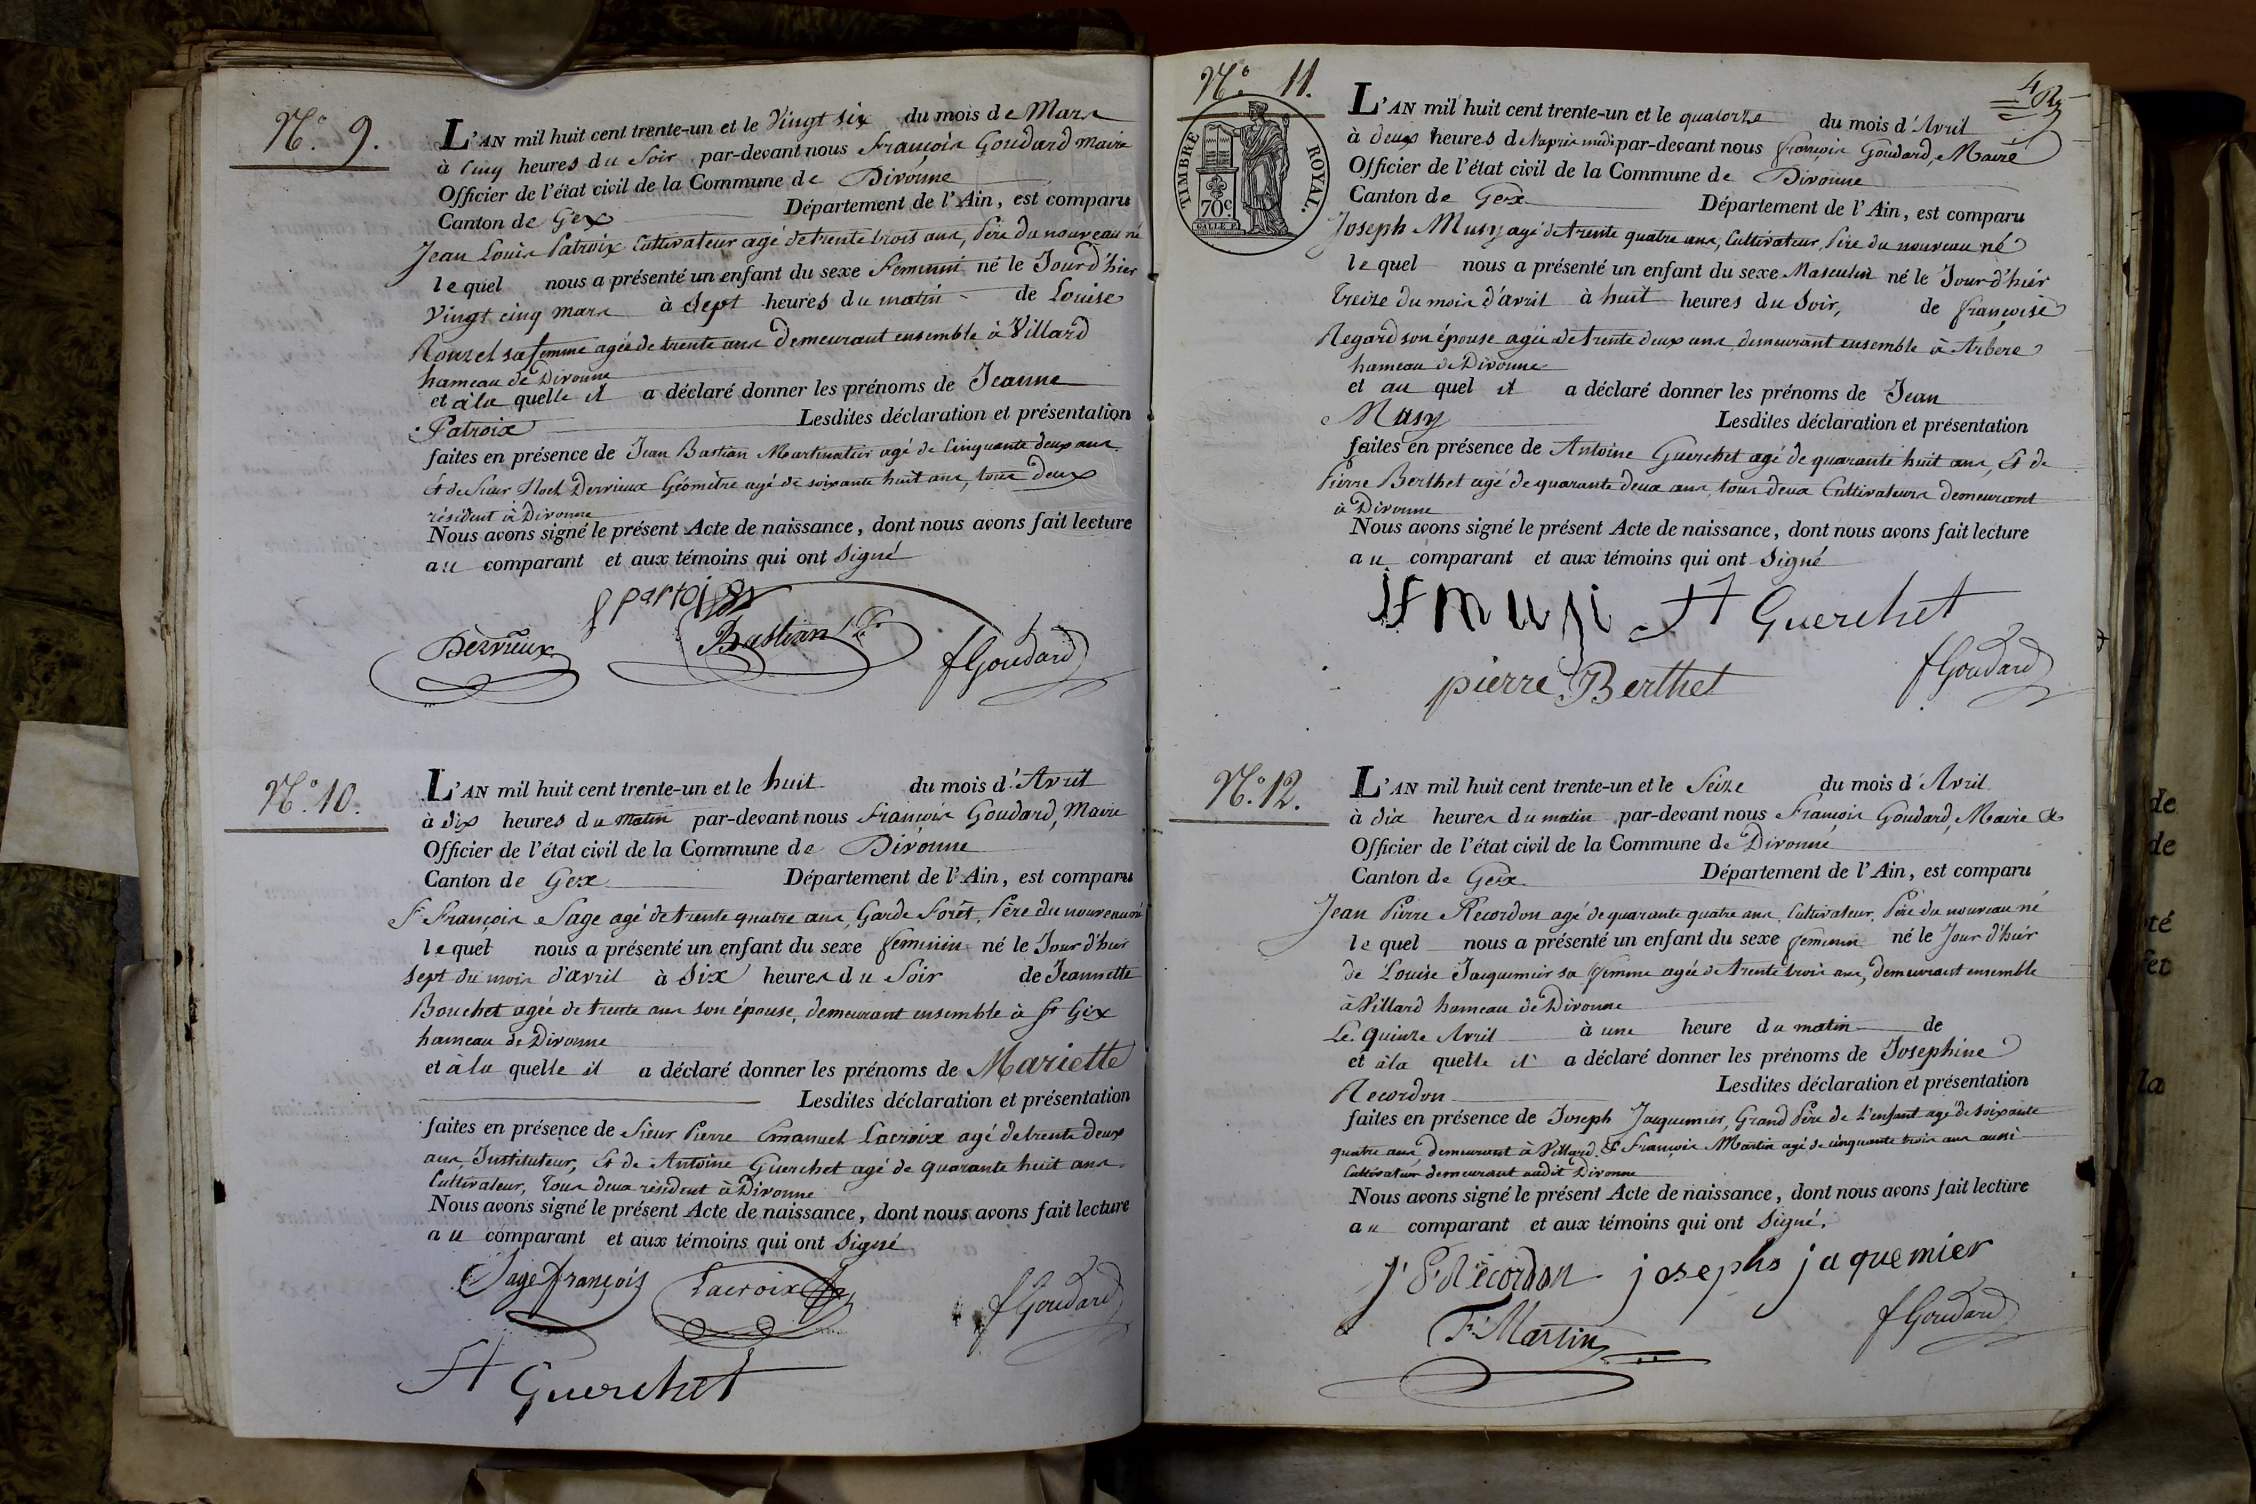 N.° 9.
L'AN mil huit cent trente-un et le Vingt six du mois de Mars
à Cinq heures du Soir par-devant nous François Goudard maire
Officier de l'état civil de la Commune de Divonne
Canton de Gex Département de l'Ain, est comparu
Jean Louis Patroix Cultivateur agé de trente trois ans, Père du nouveau né
lequel nous a présenté un enfant du sexe Feminin né le Jour d'hier
Vingt cinq mars à Sept heures du matin de Louise
Rouzel sa femme agée de trente ans Demeurant ensemble à Villard
hameau de Divonne
et à la quelle il a déclaré donner les prénoms de Jeanne
Patroix Lesdites déclaration et présentation
faites en présence de Jean Bastian agé de Cinquante deux ans
Et de Sieur Noel Dervieux Géomètre agé de soixante huit ans, tous deux
résident à Divonne
Nous avons signé le présent Acte de naissance, dont nous avons fait lecture
au comparant et aux témoins qui ont Signé
Dervieux Bastian fGoudard
N.° 10.
L'AN mil huit cent trente-un et le huit du mois d'Avril
à dix heures du matin par-devant nous François Goudard, Maire
Officier de l'état civil de la Commune de Divonne
Canton de Gex Département de l'Ain, est comparu
Sr François Sage agé de trente quatre ans, Garde Forêt, Père du nouveau né
lequel nous a présenté un enfant du sexe feminin né le Jour d'hier
sept du mois d'avril à Six heures du Soir de Jeannette
Bouchet agée de trente ans son épouse, demeurant ensemble à St Gix
hameau de Divonne
et à la quelle il a déclaré donner les prénoms de Mariette
Lesdites déclaration et présentation
faites en présence de Sieur Pierre Emanuel Lacroix agé de trente deux
ans, Instituteur, Et de Antoine Guerchet agé de quarante huit ans
Cultivateur, Tous deux résident à Divonne
Nous avons signé le présent Acte de naissance, dont nous avons fait lecture
au comparant et aux témoins qui ont Signé
Sage françois Lacroix fGoudard
At Guerchet
N.° 11.
TIMBRE ROYAL.
70c
L'AN mil huit cent trente-un et le quatorze du mois d'Avril
à deux heures d'Après midi par-devant nous François Goudard, Maire
Officier de l'état civil de la Commune de Divonne
Canton de Gex Département de l'Ain, est comparu
Joseph Musy agé de trente quatre ans, Cultivateur, Père du nouveau né
lequel nous a présenté un enfant du sexe Masculin né le Jour d'hiér
Treize du mois d'avril à huit heures du Soir, de françoise
Regard son épouse agée de trente deux ans, demeurant ensemble à Arbere
hameau de Divonne
et au quel il a déclaré donner les prénoms de Jean
Musy Lesdites déclaration et présentation
faites en présence de Antoine Guerchet agé de quarante huit ans, Et de
Pierre Berthet agé de quarante deux ans, tous deux Cultivateurs demeurant
à Divonne
Nous avons signé le présent Acte de naissance, dont nous avons fait lecture
au comparant et aux témoins qui ont Signé
jf musi At Guerchet
pierre Berthet fGoudard
N.° 12.
L'AN mil huit cent trente-un et le Seize du mois d'Avril
à dix heures du matin par-devant nous François Goudard, Maire &
Officier de l'état civil de la Commune de Divonne
Canton de Gex Département de l'Ain, est comparu
Jean Pierre Recordon agé de quarante quatre ans, Cultivateur, Père du nouveau né
lequel nous a présenté un enfant du sexe feminin né le Jour d'hiér
de Louise Jacquemier sa femme agée de trente trois ans, demeurant ensemble
à Villard hameau de Divonne
Le quinze Avril à une heure du matin de
et à la quelle il a déclaré donner les prénoms de Josephine
Recordon Lesdites déclaration et présentation
faites en présence de Joseph Jacquemier, Grand Père de l'enfant agé de soixante
quatre ans, demeurant à Villard, & François Martin agé de cinquante trois ans aussi
Cultivateur demeurant audit Divonne
Nous avons signé le présent Acte de naissance, dont nous avons fait lecture
au comparant et aux témoins qui ont Signé.
J. P. Récordon josephs jaquemier
F. Martin fGoudard